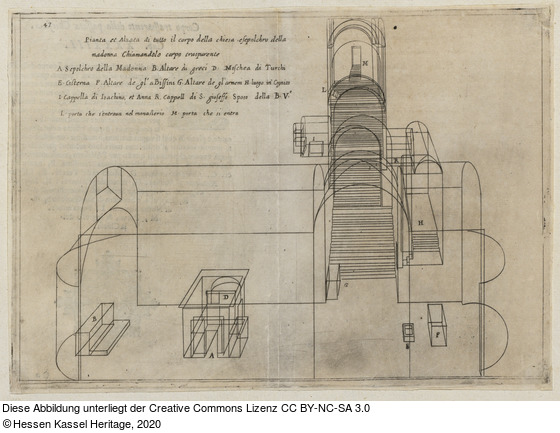 47
Pianta et Alzata di tutto il corpo della chiesa esepolchro della
madonna Chiamandolo corpo trasparente
A Sepolchro della Madonna B. Altare di greci D. Moschea di Turchi
E. Cisterna F. Altare de gl'a Bissini G. Altare de gl'armeni H. luogo
I Cappella di Ioachino, et Anna K. Cappell di S. giuseffe Sposo della B. V.
L. porta che s'entrava nel monasterio M. porta che si entra
N
L
I
K
H
G
B
D
A
F
Diese Abbildung unterliegt der Creative Commons Lizenz CC BY-NC-SA 3.0
©Hessen Kassel Heritage, 2020